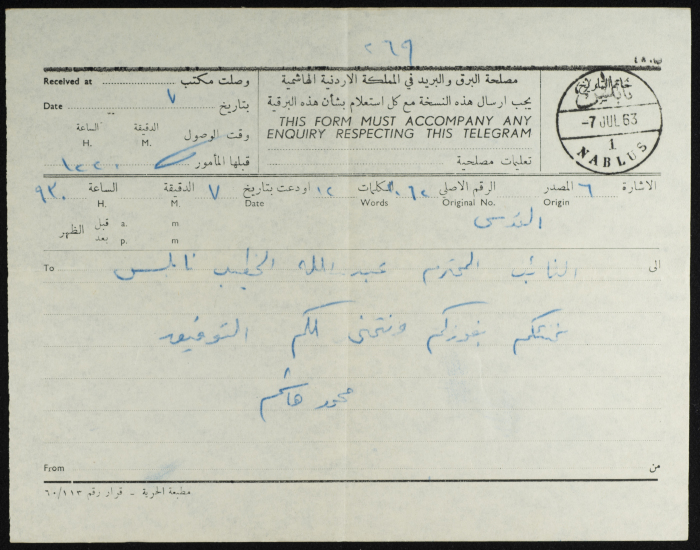 ٢٦٩
مصلحة البرق والبريد في المملكة الاردنية الهاشمية
يجب ارسال هذه النسخة مع كل استعلام بشأن هذه البرقية
THIS FORM MUST ACCOMPANY ANY
ENQUIRY RESPECTING THIS TELEGRAM
تعليمات مصلحية
Received at وصلت مكتب
Date ٧ بتاريخ
الساعة الدقيقة وقت الوصول
H. M.
١٢٢٠ قبلها المأمور
خاتم التاريخ
نابلس
-7 JUL 63
1
NABLUS
الاشارة ٦ المصدر الرقم الاصلي ٦٢ الكلمات ١٢ اودعت بتاريخ ٧ الدقيقة الساعة ٩٣٠
Origin Original No. Words Date M. H.
القدس
قبل a. m
الظهر
بعد p. m
الى النائب المحترم عبد الخطيب نابلس To
نهنئكم بفوزكم ونتمنى لكم التوفيق
محمود هاشم
From من
مطبعة الحرية - قرار رقم ٦٠/١١٣